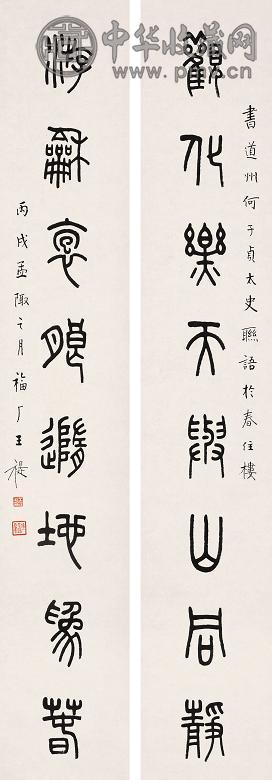 中华收藏网
觀化樂天與山同靜
書道州何子貞太史聯語於春住樓
游龢褱朖隨地爲萅
丙戌孟陬之月福厂王禔